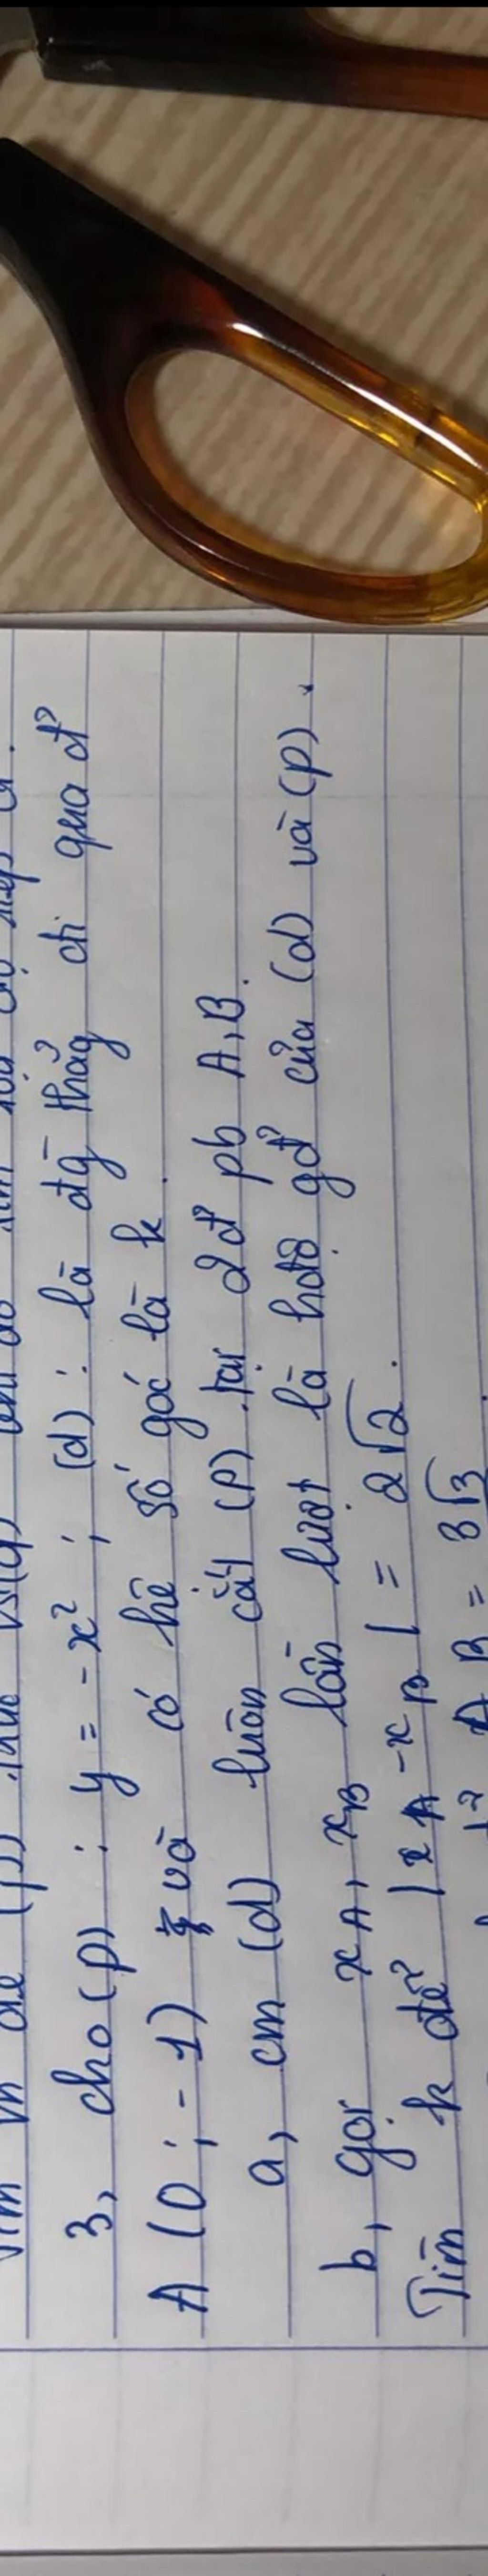 3, cho (p) : y = -x² ; (d) : là đg thẳg đi qua đ'
A (0 ; -1) và có hệ số góc là k.
a, cm (d) luôn cắt (P) tại 2đ' pb A, B.
b, gọi xA, xB lần lượt là hđộ gđ' của (d) và (p).
Tìm k để |xA - xB| = 2√2.
A B = 3√3